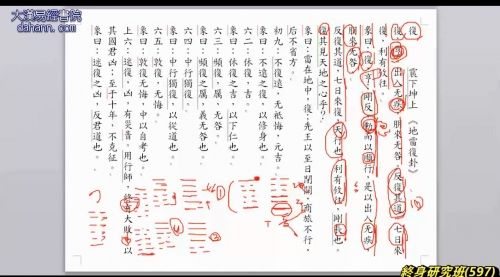 大漢易經書院
dahann.com
復
震下坤上 《地雷復卦》
復,亨。出入无疾,朋來无咎,反復其道,七日來
復,利有攸往。
彖曰:復,亨。剛反,動而以順行,是以出入无疾,
朋來无咎。
反復其道,七日來復,天行也。利有攸往,剛長也。
復其見天地之心乎?
象曰:雷在地中,復;先王以至日閉關,商旅不行,
后不省方。
初九:不復遠,无祗悔,元吉。
象曰:不遠之復,以修身也。
六二:休復,吉。
象曰:休復之吉,以下仁也。
六三:頻復,厲无咎。
象曰:頻復之厲,義无咎也。
六四:中行獨復。
象曰:中行獨復,以從道也。
六五:敦復,无悔。
象曰:敦復无悔,中以自考也。
上六:迷復,凶,有災眚。用行師,終有大敗,以
其國君凶;至于十年,不克征。
象曰:迷復之凶,反君道也。
終身研究班(597)